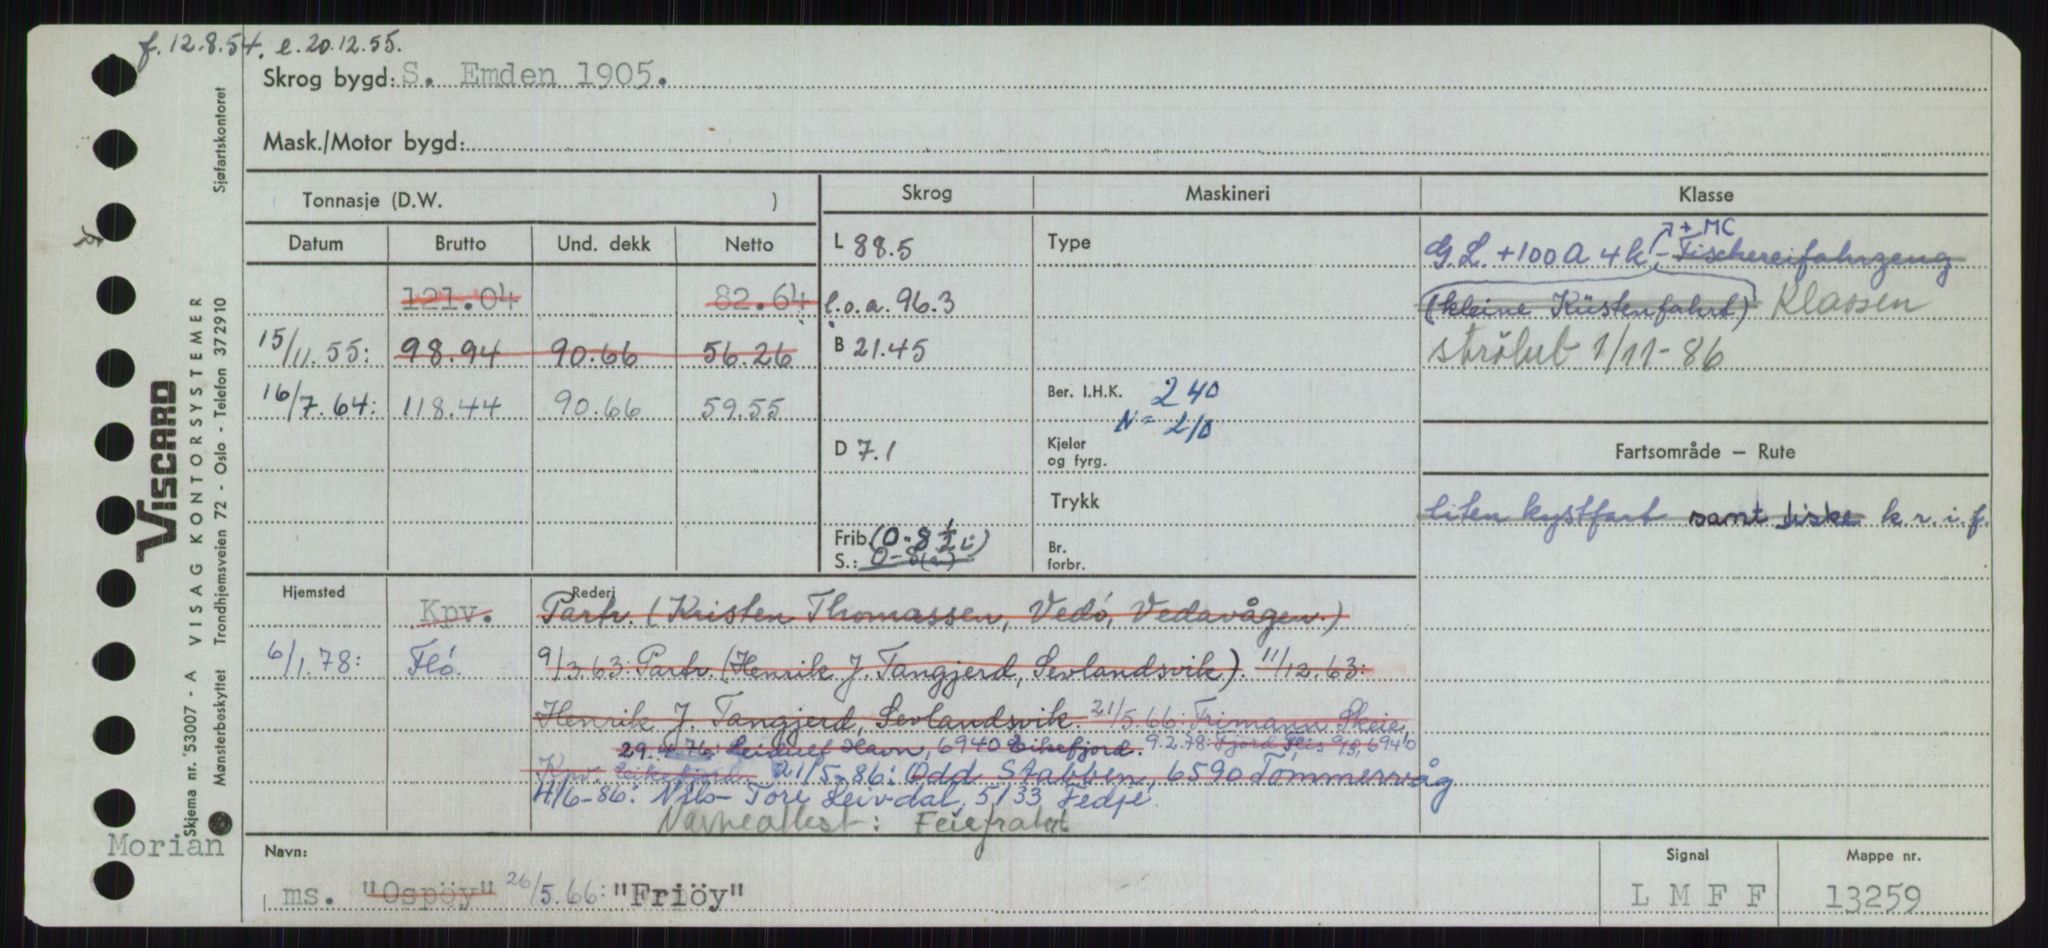 f. 12.8.54. e. 20.12.55.
Skrog bygd: S. Emden 1905.
Mask./Motor bygd:
Tonnasje (D.W. )
Skrog
Maskineri
Klasse
Datum Brutto Und. dekk Netto
L 88.5
Type
+ MC
G.L. +100 A 4 k - Fischereifahrzeug
121.04 82.64
l.o.a. 96.3
(kleine Küstenfahrt) Klassen
15/11.55: 98.94 90.66 56.26
B 21.45
strölut 1/11-86
16/7.64: 118.44 90.66 59.55
Ber. I.H.K. 240
N = 210
D 7.1
Kjeler
og fyrg.
Fartsområde – Rute
Trykk
liten kystfart samt fiske k.r.i.f.
Frib. (0-8 1/2 i)
S.: 0-8
Br.
forbr.
Hjemsted
Rederi
Kpv. Partr. (Kristen Thomassen, Vedö, Vedavågen.)
6/1.78: Flö. 9/3.63: Partr. (Henrik J. Tangjerd, Sevlandsvik). 11/12.63:
Henrik J. Tangjerd, Sevlandsvik. 21/5.66: Trimann Skeie,
29.4.76: Leidulf Havn, 6940 Eikefjord. 9.2.78: Fjord Fleis 6940
Kpv. Eikefjord. 21/5-86: Odd Stabben, 6590 Tömmervåg
4/6-86: Nils-Tore Leivdal, 5133 Fedje.
Navneattest:
Morian
Navn:
ms. "Ospöy" 26/5.66: "Friöy"
Signal
L M F F
Mappe nr.
13259
VISCARD
Skjema nr. 53007 - A VISAG KONTORSYSTEMER
Mønsterbeskyttet Trondhjemsveien 72 - Oslo - Telefon 372910 Sjøfartskontoret